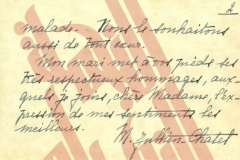 2
malade. Nous le souhaitons
aussi de tout cœur.
Mon mari met à vos pieds ses
très respectueux hommages, aux-
quels je joins, chère Madame, l'ex-
pression de mes sentiments les
meilleurs.
M. Jullien-Chatel